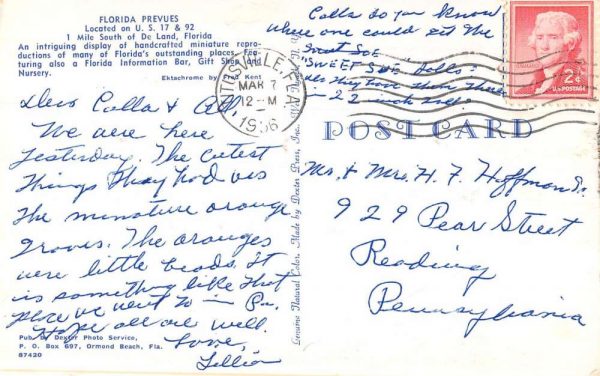 FLORIDA PREVUES
Located on U. S. 17 & 92
1 Mile South of De Land, Florida
An intriguing display of handcrafted miniature repro-
ductions of many of Florida's outstanding places. Fea-
turing also a Florida Information Bar, Gift Shop and
Nursery.
Ektachrome by Fred Kent
Dear Calla & All
We were here
yesterday. The cutest
things they had was
the minature orange
groves. The oranges
were little beads. It
is something like that
place we went to in Pa.
Hope all are well.
Love,
Lillian
Pub. By Dexter Photo Service,
P. O. Box 697, Ormond Beach, Fla.
87420
Genuine Natural Color, Made by Dexter Press, Inc.
TITUSVILLE, FLA.
MAR 7
12-M
1956
Calla do you know
where one could get the
Sweet Sue
"SWEET SUE dolls"
they have them there
in 22 inch size.
2¢
U.S. POSTAGE
POST CARD
Mr. & Mrs. H. F. Hoffman Sr.
929 Pear Street
Reading
Pennsylvania